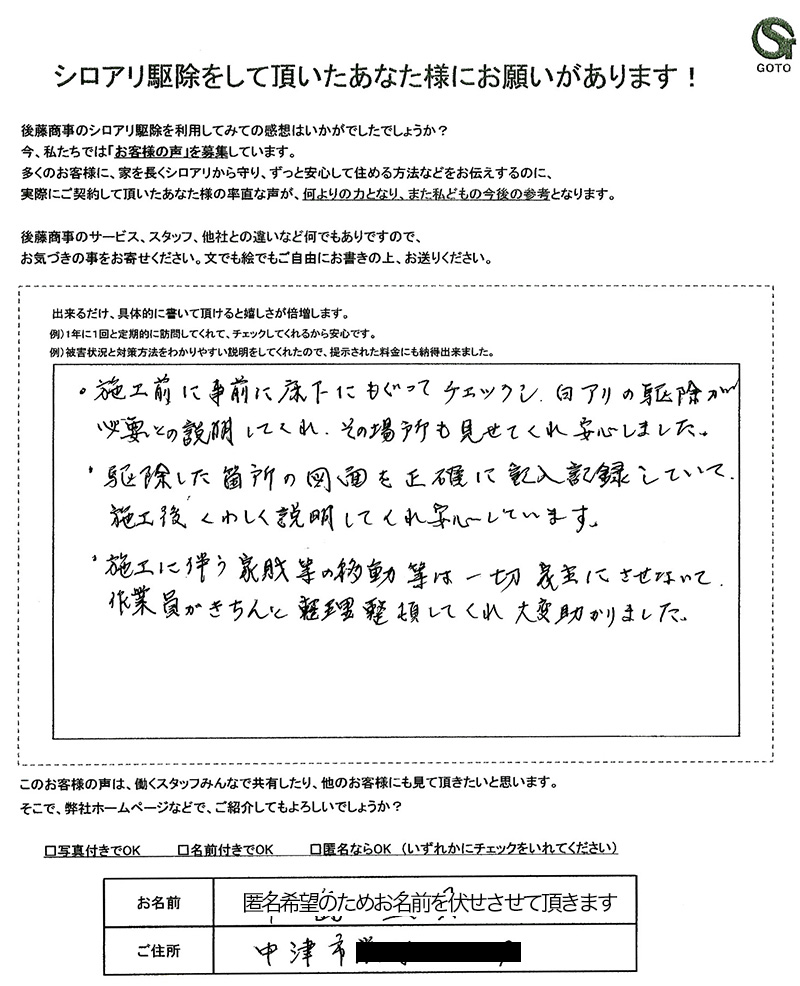 GOTO
シロアリ駆除をして頂いたあなた様にお願いがあります！
後藤商事のシロアリ駆除を利用してみての感想はいかがでしたでしょうか？
今、私たちでは「お客様の声」を募集しています。
多くのお客様に、家を長くシロアリから守り、ずっと安心して住める方法などをお伝えするのに、
実際にご契約して頂いたあなた様の率直な声が、何よりの力となり、また私どもの今後の参考となります。
後藤商事のサービス、スタッフ、他社との違いなど何でもありですので、
お気づきの事をお寄せください。文でも絵でもご自由にお書きの上、お送りください。
出来るだけ、具体的に書いて頂けると嬉しさが倍増します。
例）1年に1回と定期的に訪問してくれて、チェックしてくれるから安心です。
例）被害状況と対策方法をわかりやすい説明をしてくれたので、提示された料金にも納得出来ました。
・施工前に事前に床下にもぐってチェックし、白アリの駆除が
必要との説明してくれ、その場所も見せてくれ安心しました。
・駆除した箇所の図面を正確に記入記録していて、
施工後くわしく説明してくれ安心しています。
・施工に伴う家財等の移動等は一切家主にさせないで、
作業員がきちんと整理整頓してくれ大変助かりました。
このお客様の声は、働くスタッフみんなで共有したり、他のお客様にも見て頂きたいと思います。
そこで、弊社ホームページなどで、ご紹介してもよろしいでしょうか？
□写真付きでOK □名前付きでOK □匿名ならOK （いずれかにチェックをいれてください）
お名前 匿名希望のためお名前を伏せさせて頂きます
ご住所 中津市